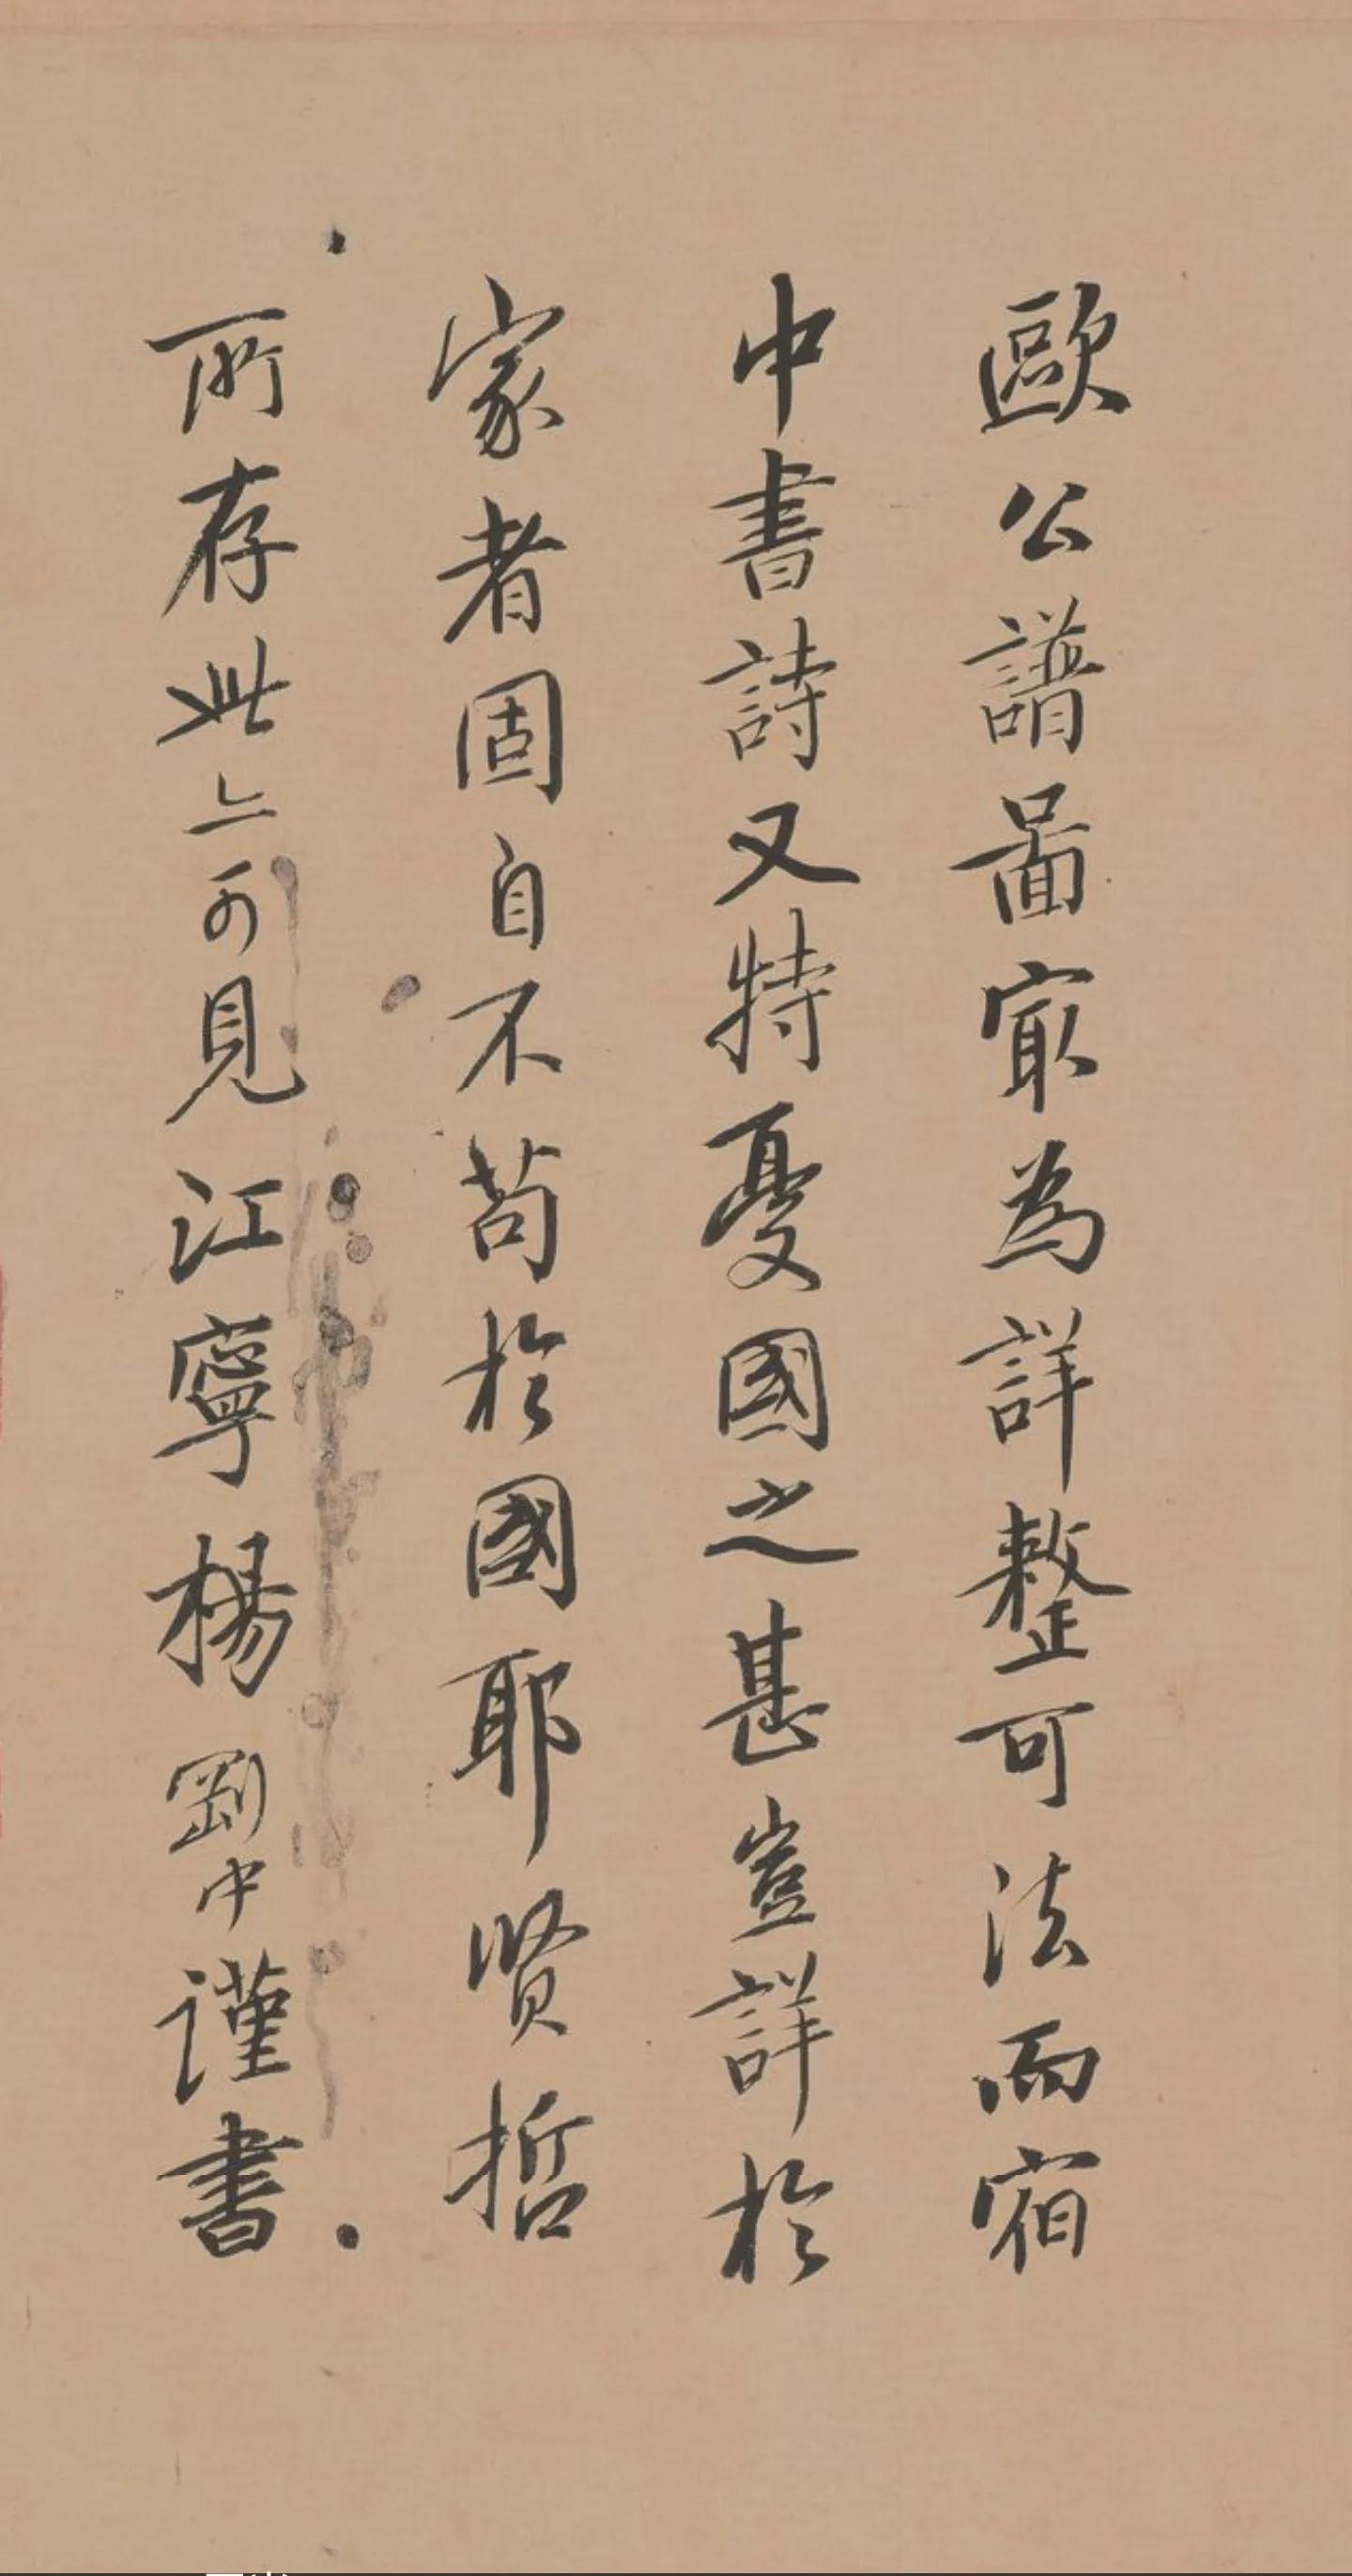 歐公譜啚冣為詳整可法而宿
中書詩又特憂國之甚豈詳於
家者固自不苟於國耶賢哲
所存此亦可見江寧楊剛中謹書